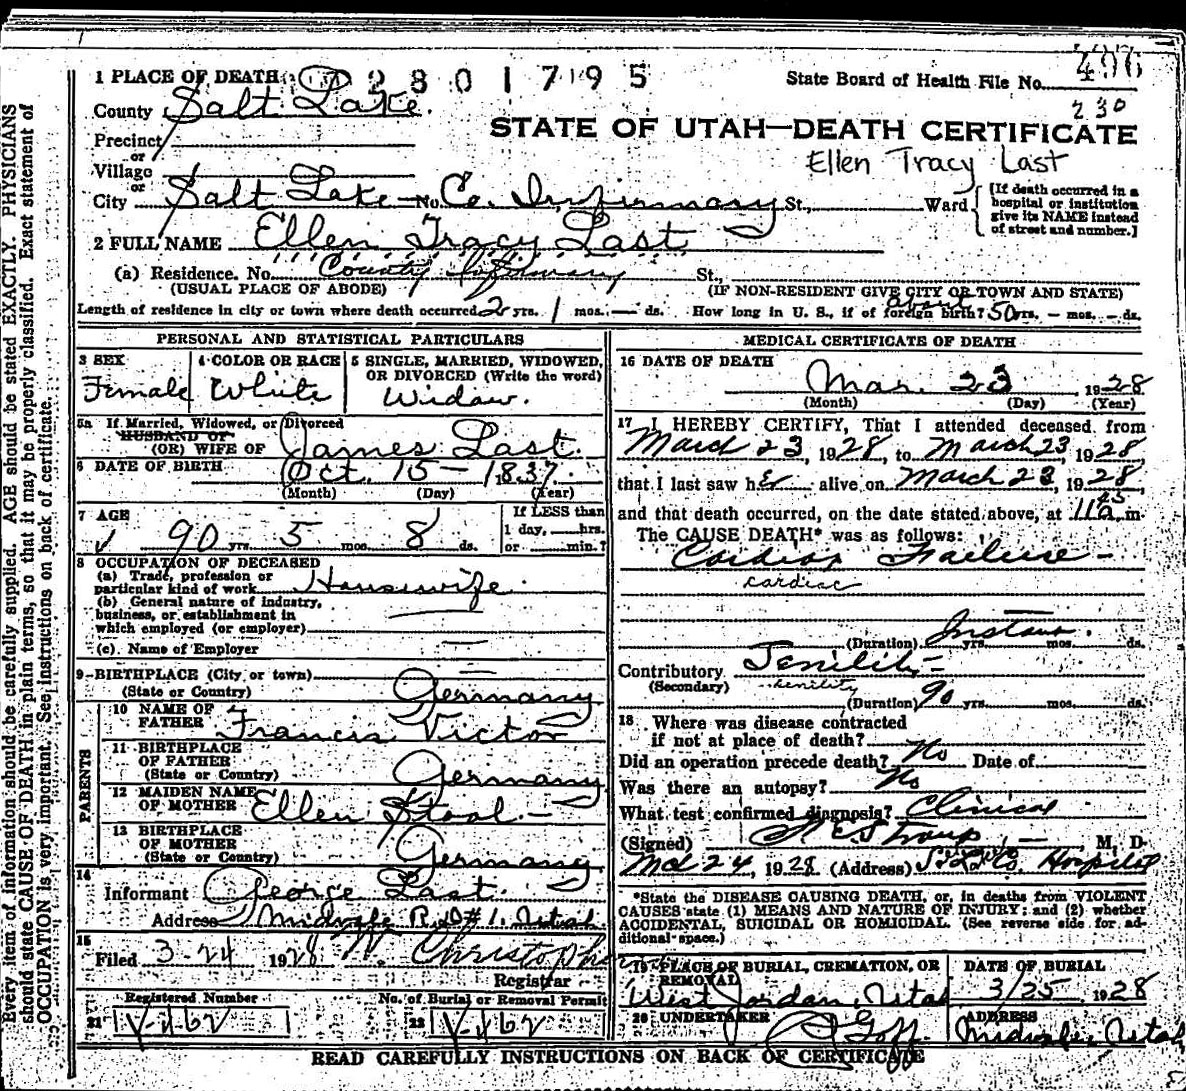 1 PLACE OF DEATH 2801795
State Board of Health File No. 496
County Salt Lake. 230
STATE OF UTAH—DEATH CERTIFICATE
Precinct
or
Ellen Tracy Last
Village
or
City Salt Lake No. Co. Infirmary St., Ward [If death occurred in a hospital or institution give its NAME instead of street and number.]
2 FULL NAME Ellen Tracy Last
(a) Residence. No. County Infirmary St.,
(USUAL PLACE OF ABODE) (IF NON-RESIDENT GIVE CITY OR TOWN AND STATE)
Length of residence in city or town where death occurred 2 yrs. 1 mos. — ds. How long in U. S., if of foreign birth? about 50 yrs. — mos. — ds.
PERSONAL AND STATISTICAL PARTICULARS
3 SEX
Female
4 COLOR OR RACE
White
5 SINGLE, MARRIED, WIDOWED, OR DIVORCED (Write the word)
Widow.
5a If Married, Widowed, or Divorced
HUSBAND OF
(OR) WIFE OF James Last.
6 DATE OF BIRTH Oct. 15 — 1837.
(Month) (Day) (Year)
7 AGE
90 yrs. 5 mos. 8 ds.
If LESS than
1 day, hrs.
or min.?
8 OCCUPATION OF DECEASED
(a) Trade, profession or
particular kind of work Housewife.
(b) General nature of industry,
business, or establishment in
which employed (or employer)
(c) Name of Employer
9 BIRTHPLACE (City or town)
(State or Country) Germany
PARENTS
10 NAME OF
FATHER Francis Victor
11 BIRTHPLACE
OF FATHER
(State or Country) Germany
12 MAIDEN NAME
OF MOTHER Ellen Stool —
13 BIRTHPLACE
OF MOTHER
(State or Country) Germany
14
Informant George Last.
Address Midvale R.D#1. Utah
15
Filed 3-24 1928 W. Christoph
Registrar
Registered Number
21 V-462
No. of Burial or Removal Permit
22 V-462
MEDICAL CERTIFICATE OF DEATH
16 DATE OF DEATH
Mar. 23, 1928
(Month) (Day) (Year)
17 I HEREBY CERTIFY, That I attended deceased from
March 23, 1928, to March 23, 1928,
that I last saw her alive on March 23, 1928
and that death occurred, on the date stated above, at 11 45 a. m.
The CAUSE DEATH* was as follows:
Cardiac Failure —
cardiac
(Duration) Instan. yrs. mos. ds.
Contributory Senility —
(Secondary) senility
(Duration) 90 yrs. mos. ds.
18 Where was disease contracted
if not at place of death?
Did an operation precede death? No Date of
Was there an autopsy? No
What test confirmed diagnosis? Clinical
(Signed) M. D.
Mch 24, 1928 (Address) S. L. Co. Hospital
*State the DISEASE CAUSING DEATH, or, in deaths from VIOLENT
CAUSES state (1) MEANS AND NATURE OF INJURY; and (2) whether
ACCIDENTAL, SUICIDAL OR HOMICIDAL. (See reverse side for ad-
ditional space.)
19 PLACE OF BURIAL, CREMATION, OR
REMOVAL
West Jordan, Utah
DATE OF BURIAL
3/25, 1928
20 UNDERTAKER
Goff.
ADDRESS
Midvale, Utah
READ CAREFULLY INSTRUCTIONS ON BACK OF CERTIFICATE
Every item of information should be carefully supplied. AGE should be stated EXACTLY. PHYSICIANS
should state CAUSE OF DEATH in plain terms, so that it may be properly classified. Exact statement of
OCCUPATION is very important. See instructions on back of certificate.